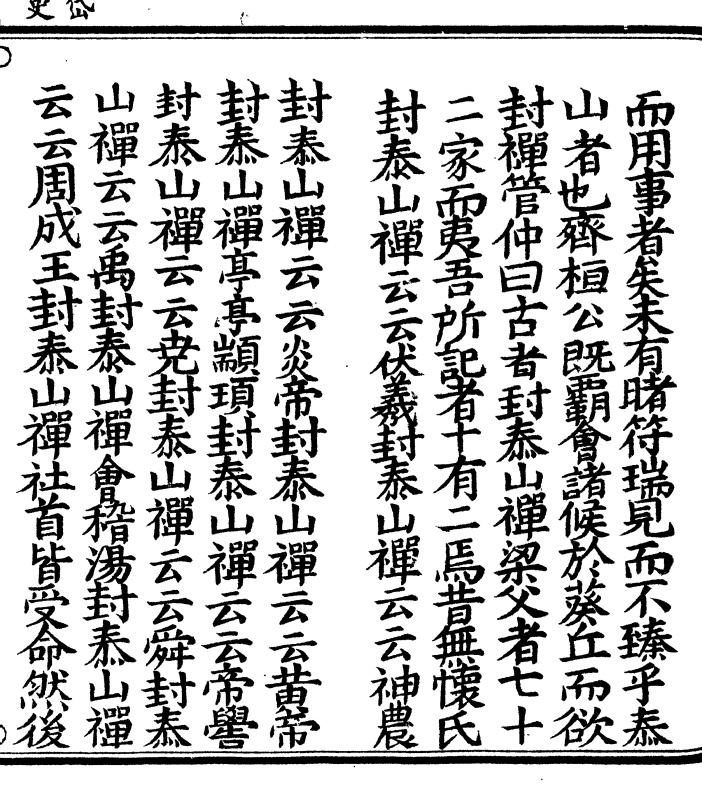 岱史
而用事者矣未有睹符瑞見而不臻乎泰
山者也齊桓公既覇會諸侯於葵丘而欲
封禪管仲曰古者封泰山禪梁父者七十
二家而夷吾所記者十有二焉昔無懷氏
封泰山禪云云伏羲封泰山禪云云神農
封泰山禪云云炎帝封泰山禪云云黄帝
封泰山禪亭亭顓頊封泰山禪云云帝嚳
封泰山禪云云尭封泰山禪云云舜封泰
山禪云云禹封泰山禪會稽湯封泰山禪
云云周成王封泰山禪社首皆受命然後